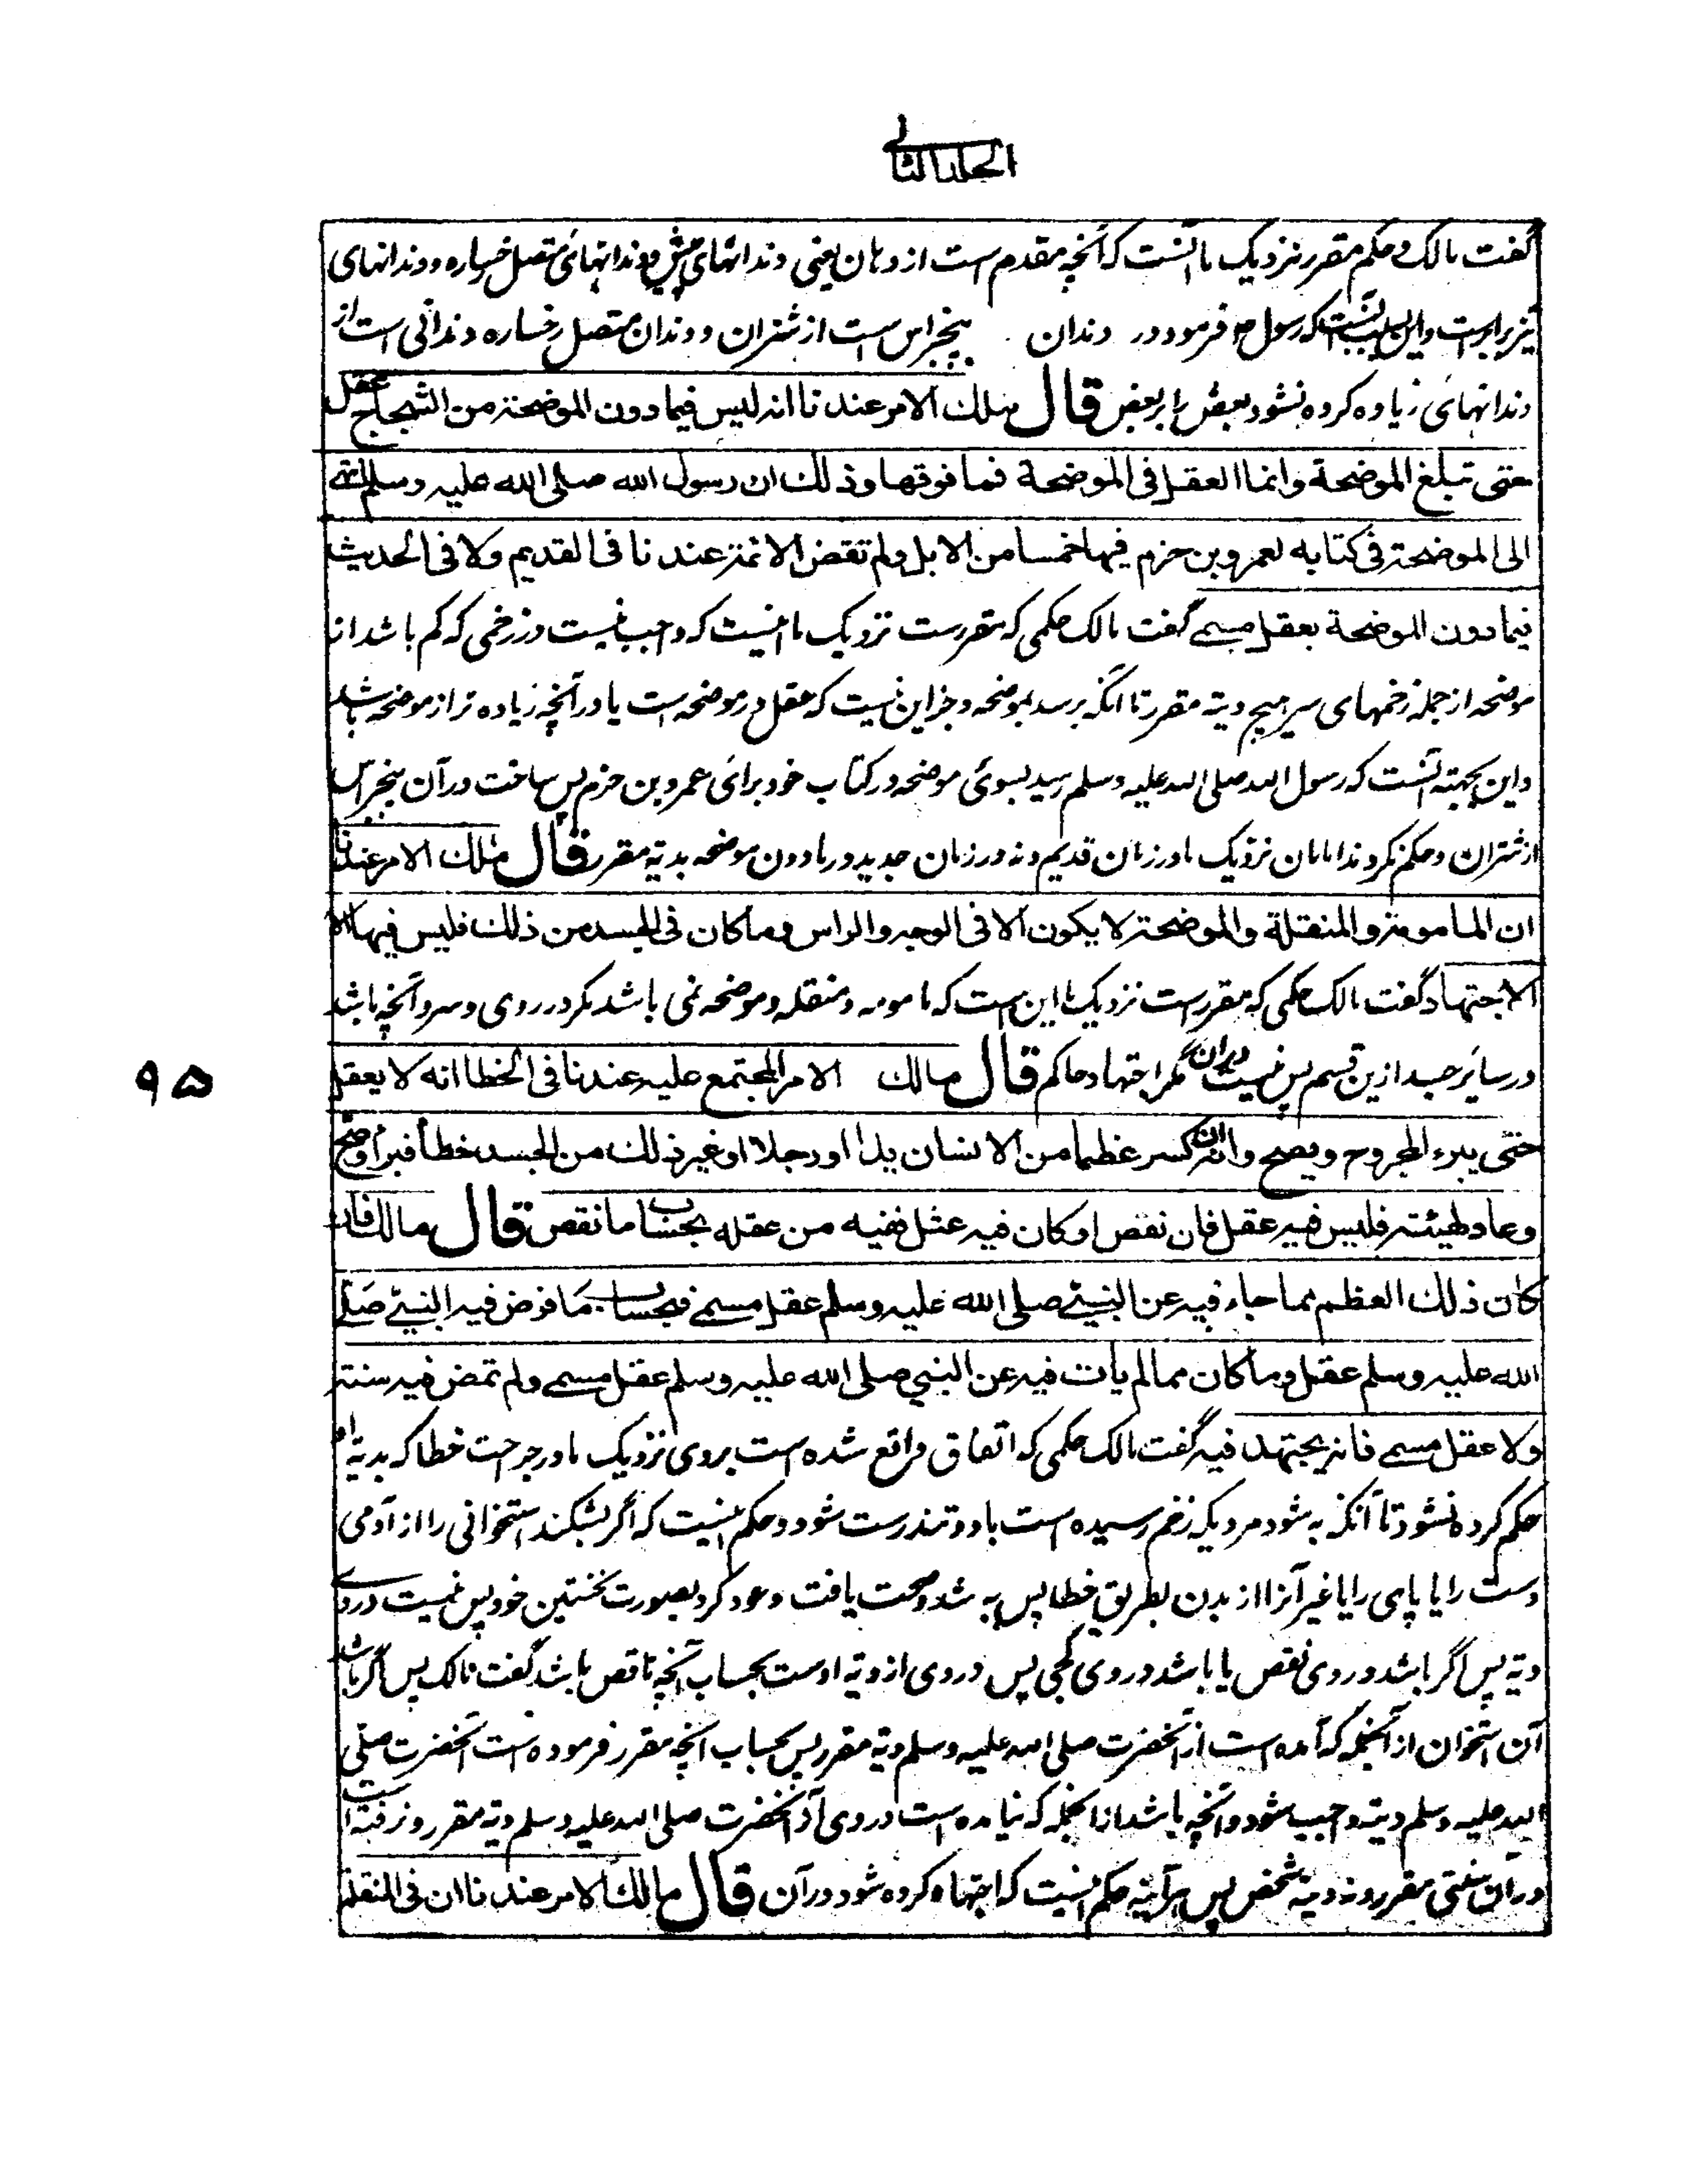 الجلد الثانی
گفت مالک و حکم مقرر نزدیک ما آنست که آنچه مقدم است از دهان یعنی دندانهای پیش و دندانهای متصل خساره و دندانهای
نیز برابرست و این بسبب آنست که رسول ص فرمود در دندان پنجراس ست از شتران و دندان متصل رخساره دندانی است از
دندانهای زیاده کرده نشود بعض را بر بعض قال ملك الامر عندنا انه ليس فيما دون الموضحة من الشجاج عقل
حتى تبلغ الموضحة وانما العقل فى الموضحة فما فوقها وذلك ان رسول الله صلى الله عليه وسلم انتهى
الى الموضحة فى كتابه لعمرو بن حزم فيها خمسا من الابل ولم تقض الائمة عندنا فى القديم ولا فى الحديث
فيما دون الموضحة بعقل مسمى گفت مالک حکمی که مقررست نزدیک ما اینست که واجب نیست در زخمی که کم باشد از
موضحه از جمله زخمهای سر هیچ دیة مقرر تا آنکه برسد بموضحه و جز این نیست که عقل در موضحه است یا در آنچه زیاده تر از موضحه باشد
و این بجهة آنست که رسول الله صلی الله علیه وسلم رسید بسوئی موضحه در کتاب خود برای عمرو بن حزم پس ساخت در آن پنجراس
از شتران و حکم نکردند امامان نزدیک ما در زمان قدیم و نه در زمان جدید در مادون موضحه بدیة مقرر قال ملك الامر عندنا
ان المامومة والمنقلة والموضحة لا يكون الا فى الوجه والراس وما كان فى الجسد من ذلك فليس فيها الا
الاجتهاد گفت مالک حکمی که مقررست نزدیک ما این ست که مامومه و منقله و موضحه نمی باشد مگر در روی و سر و آنچه باشد
در سائر جسد ازین قسم پس نیست در ان مگر اجتهاد حاکم قال مالك الامر المجتمع عليه عندنا فى الخطا انه لا يعقل
حتى يبرء المجروح ويصح وانه ان كسر عظما من الانسان يدا او رجلا او غير ذلك من الجسد خطأ فبرأ وصح
وعاد لهيئته فليس فيه عقل فان نقص او كان فيه عثل ففيه من عقله بحساب ما نقص قال مالك فان
كان ذلك العظم مما جاء فيه عن النبى صلى الله عليه وسلم عقل مسمى فبحساب ما فرض فيه النبى صلى
الله عليه وسلم عقل وما كان مما لم يات فيه عن النبى صلى الله عليه وسلم عقل مسمى ولم تمض فيه سنة
ولا عقل مسمى فانه يجتهد فيه گفت مالک حکمی که اتفاق واقع شده است بروی نزدیک ما در جراحت خطا که بدیة او
حکم کرده نشود تا آنکه به شود مردیکه زخم رسیده است باو و تندرست شود و حکم اینست که اگر بشکند استخوانی را از آدمی
دست را یا پای را یا غیر آنرا از بدن بطریق خطا پس به شد و صحت یافت و عود کرد بصورت نخستین خود پس نیست در وی
دیة پس اگر باشد در وی نقص یا باشد در وی کجی پس در وی از دیة اوست بحساب آنچه ناقص باشد گفت مالک پس اگر باشد
آن استخوان از آنجمله که آمده است از آنحضرت صلی الله علیه وسلم دیة مقرر پس بحساب آنچه مقرر فرموده است آنحضرت صلی
الله علیه وسلم دیة واجب شود و آنچه باشد از آنجمله که نیامده است در وی از آنحضرت صلی الله علیه وسلم دیة مقرر و نرفته است
در آن سنتی مقرر و نه دیة مشخص پس هر آینه حکم اینست که اجتهاد کرده شود در آن قال مالك الامر عندنا ان فى المنقلة
۹۵